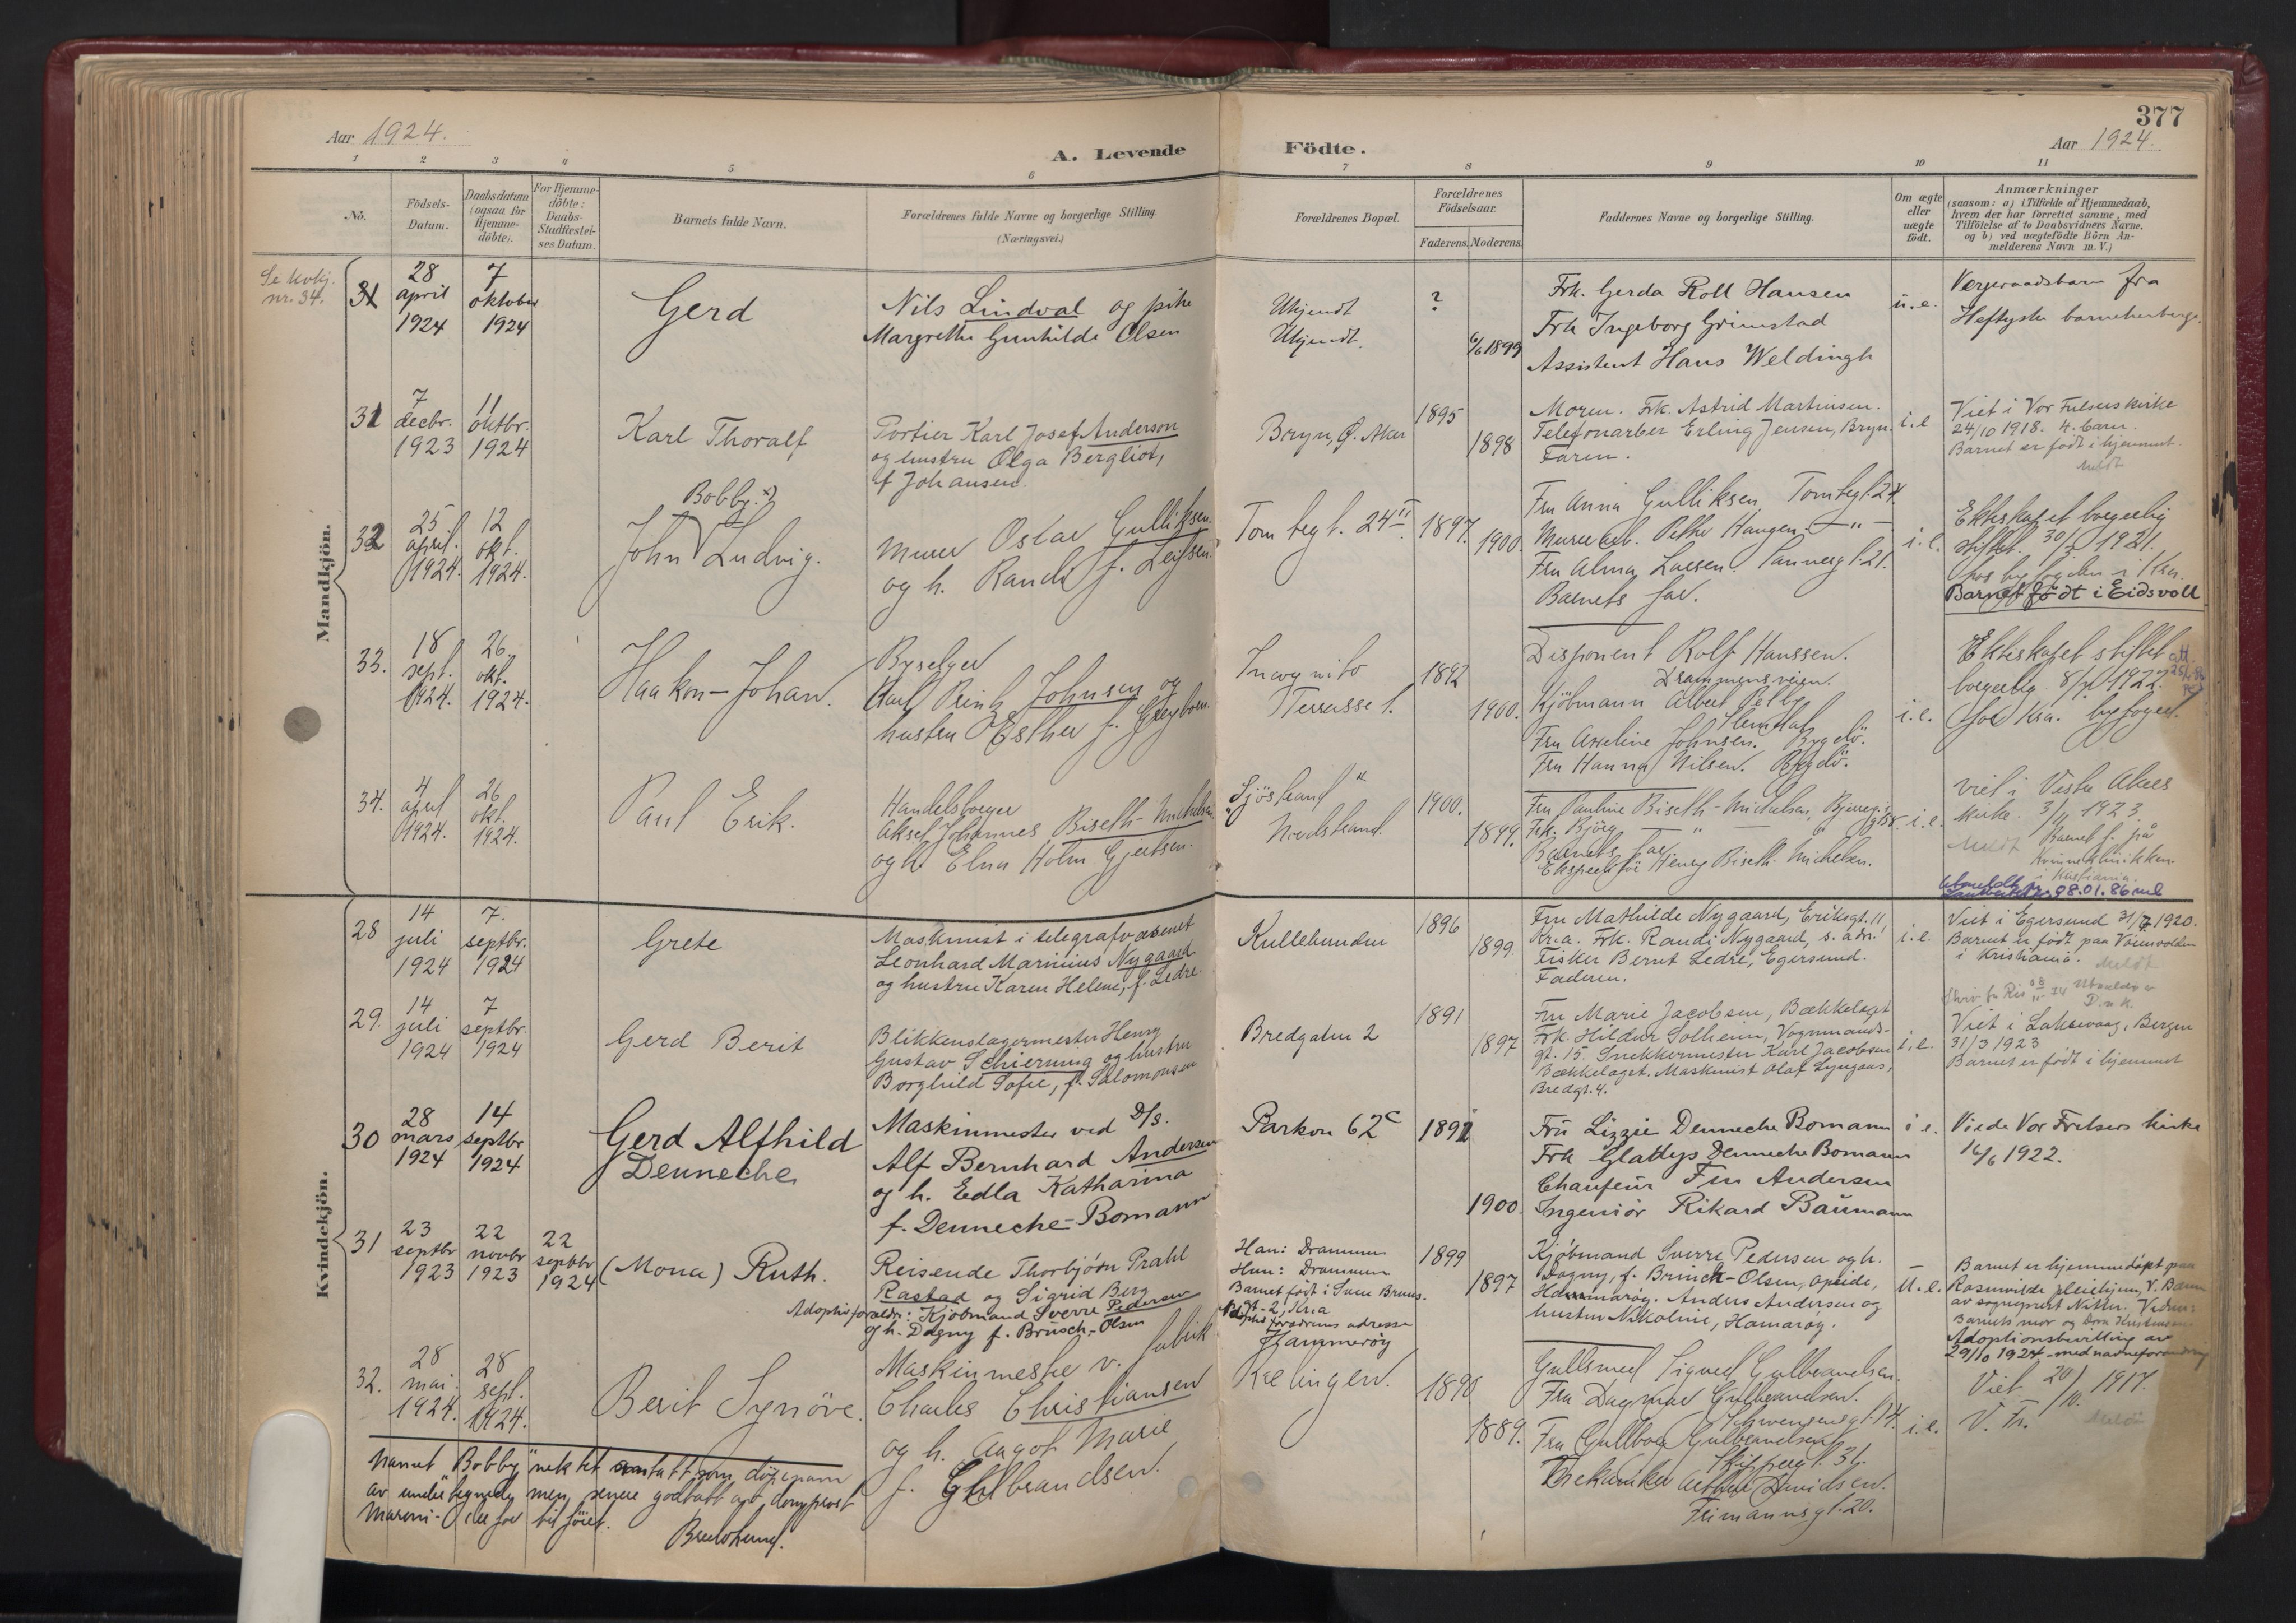 377
Aar 1924.
A. Levende Födte.
Aar 1924.
1 2 3 4 5 6 7 8 9 10 11
No.
Födsels-Datum.
Daabsdatum (ogsaa for Hjemmedöbte).
For Hjemmedöbte: Daabs-Stadfæstelses Datum.
Barnets fulde Navn.
Forældrenes fulde Navne og borgerlige Stilling (Næringsvei.)
Forældrenes Bopæl.
Forældrenes Födselsaar.
Faderens. Moderens.
Faddernes Navne og borgerlige Stilling.
Om ægte eller uægte födt.
Anmærkninger
(saasom: a) i Tilfælde af Hjemmedaab, hvem der har forrettet samme, med Tilföielse af to Daabsvidners Navne, og b) ved uægtefödte Börn Anmelderens Navn m. V.)
Mandkjön.
Se kvkj. nr. 34.
31
28 april 1924
7 oktober 1924
Gerd
Nils Lindval og pike
Margrethe Gunhilde Olsen
Ukjendt
Ukjendt.
?
6/6 1899
Frk. Gerda Roll Hansen
Frk Ingeborg Grimstad
Assistent Hans Weldingh
u.e.
Vergeraadsbarn fra
Heftyske barneherberge.
31
7 decbr. 1923
11 oktbr. 1924
Karl Thoralf
Portier Karl Josef Anderson
og hustru Olga Bergliot,
f Johansen.
Bryn, Ø. Aker
1895
1898
Moren. Frk. Astrid Martinsen.
Telefonarber Erling Jensen, Bryn.
Faren.
i.e
Viet i Vor Frelsers kirke
24/10 1918. 4. barn.
Barnet er født i hjemmet.
Meldt
32
25 april. 1924.
12 okt. 1924.
Bobby. x)
John Ludvig.
Murer Oskar Gulliksen.
og h. Randi f. Leifsen.
Tomtegt. 24 II
1897.
1900.
Fru Anna Gulliksen Tomtegt. 24.
Murerarb. Petter Haugen. - " -
Fru Alma Larsen. Sannergt. 21.
Barnets far.
i. e.
Ekteskapet borgerlig
stiftet. 30/7 1921.
hos byfogden i Kra.
Barnet födt i Eidsvoll
33.
18 sept. 1924.
26. okt. 1924.
Haakon-Johan.
Byselger
Karl Prinz Johnsen og
hustru Esther f.
Incognito
Terrasse 1.
1892
1900.
Disponent Rolf Hanssen.
Drammensveien.
Kjöbmann Albert
Fru Asseline Johnsen. Bygdö.
Fru Hanna Nilsen. Bygdö.
i.e.
Ekteskapet stiftet
borgerlig 8/7 1922.
for Kra. byfoged.
34.
4 april 1924.
26 okt. 1924.
Paul Erik.
Handelsborger
Aksel Johannes Biseth-Michelsen
og h. Elna Holm Gjertsen.
"Sjöstrand"
Nordstrand.
1900.
1899.
Fru Pauline Biseth-Michelsen,
Frk. Bjørg - " -
Barnets far
Ekspeditör Henry Biseth Michelsen.
i.e.
Viet i Vestre Akers
kirke. 3/11 1923.
Meldt
Barnet f. på
Kvinneklinikken
i Kristiania.
08.01.86
Kvindekjön.
28
14 juli 1924
7. septbr. 1924
Grete
Maskinist i telegrafvæsenet
Leonhard Marinius Nygaard
og hustru Karen Helene, f. Ledre.
Kullebunden
1896
1899.
Fru Mathilde Nygaard, Eriksgt. 11
Kr.a. Frk. Randi Nygaard, s. adr.
Fisker Bernt Ledre, Egersund.
Faderen.
i.e.
Viet i Egersund 31/7 1920.
Barnet er født paa Voienvolden
i Kristiania.
Meldt
29.
14 juli 1924
7 septbr. 1924
Gerd Berit
Blikkenslagermester Henry
Gustav Schierning og hustru
Borghild Sofie, f. Salomonsen
Bredgaten 2
1891
1897
Fru Marie Jacobsen, Bækkelaget
Frk. Hildur Solheim, Vognmands-
gt. 15. Snekkermester Karl Jacobsen
Bækkelaget. Maskinist Olaf Lyngaas,
Bredgt. 4.
i.e.
Viet i Laksevaag, Bergen
31/3 1923
Barnet er født i hjemmet
30
28 mars 1924
14 septbr 1924
Gerd Alfhild
Denneche
Maskinmester ved D/s.
Alf Bernhard Andersen
og h. Edla Katharina
f. Denneche-Bomann
Parkvn 62c
1892
1900.
Fru Lizzie Denneche Bomann
Frk Gladys Denneche Bomann
Chaufeur Finn Andersen
Ingeniør Rikard Baumann
i e.
Viede Vor Frelsers kirke
16/6 1922.
31
23 septbr 1923
22 novbr 1923
22 septbr 1924
(Mona) Ruth.
Reisende Thorbjørn Prahl
Rastad og Sigrid Berg
Adoptivforældre: Kjöbmand Sverre Pedersen
og h. Dagny f. Brusch-Olsen
Han: Drammen
Hun: Drammen
Barnet født i Sven Bruns-
gt. 2, Kr.a
Adoptivforældrenes adresse
Hammerøy
1899
1897
Kjøbmand Sverre Pedersen og h.
Dagny, f. Brusch-Olsen,
Hamarøy. Anders Andersen og
hustru Nikoline, Hamarøy.
u.e.
Barnet er hjemmedøpt paa
Rosenvilde pleiehjem, V. Bærum
av sogneprest Nitter. Vidner:
Barnets mor og Dora Kristensen.
Adoptionsbevilling av
29/10 1924 med navneforandring
32.
28 mai 1924.
28 sept. 1924.
Berit Synöve.
Maskinmester v. fabrik
Charles Christiansen
og h. Aagot Marie
f. Gulbrandsen.
Rælingen.
1890
1889.
Gullsmed Sigurd Gulbrandsen.
Fru Dagmar Gulbrandsen.
Schwensensgt. 14.
Fru Gullborg Gulbrandsen
Skippergt. 31.
Mekaniker Arthur Davidsen.
Frimannsgt. 20.
i.e.
Viet 20/10 1917.
V. Fr.
Meldt
Navnet "Bobby" nektet som døpenavn
av undertegnede, men senere godtatt av domprost
Maroni.